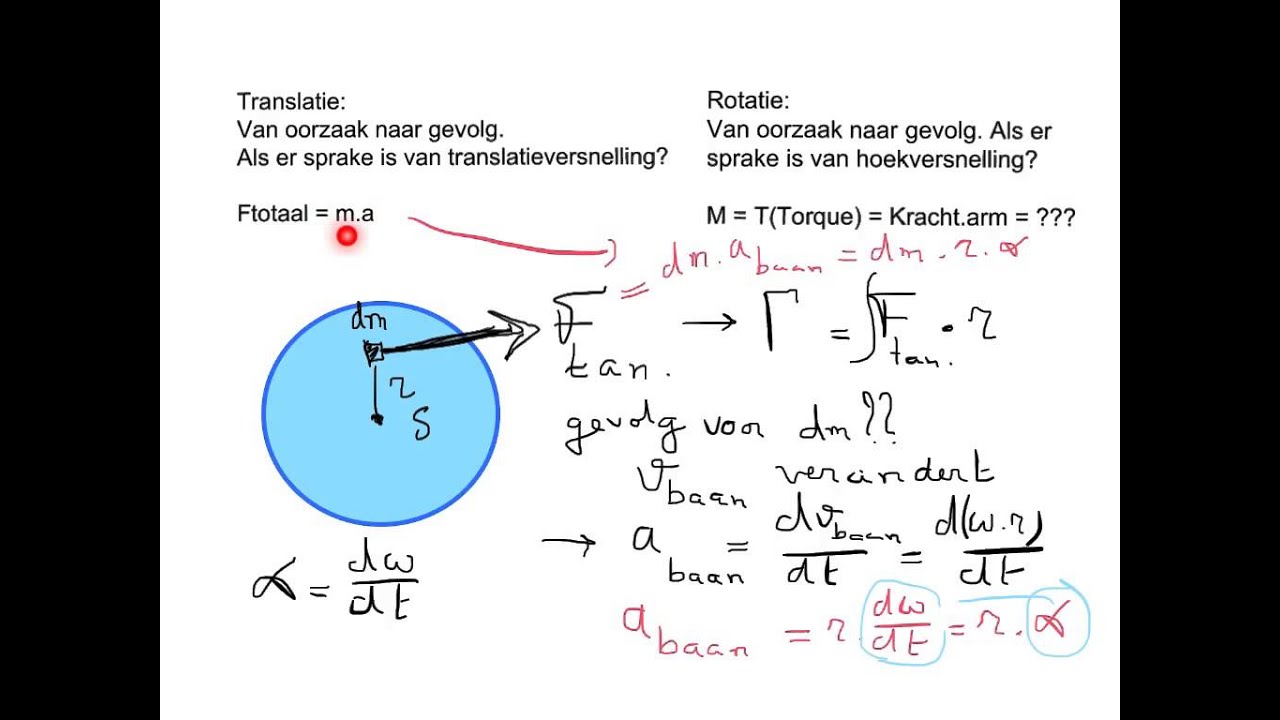 Translatie:
Van oorzaak naar gevolg.
Als er sprake is van translatieversnelling?
Ftotaal = m.a
Rotatie:
Van oorzaak naar gevolg. Als er
sprake is van hoekversnelling?
M = T(Torque) = Kracht.arm = ???
= dm . a baan = dm . r . α
F tan. → Γ = ∫F tan. . r
dm
r
S
gevolg voor dm ??
v baan verandert
→ a baan = dv baan / dt = d(ω.r) / dt
α = dω / dt
a baan = r . dω / dt = r . α